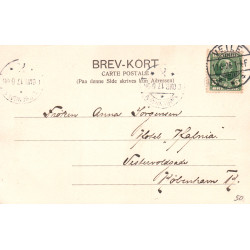 BREV-KORT
CARTE POSTALE
(Paa denne Side skrives kun Adressen)
VEJLE
Frøken Anna Jørgensen
Hotel Hafnia
Vestervoldgade
København B.